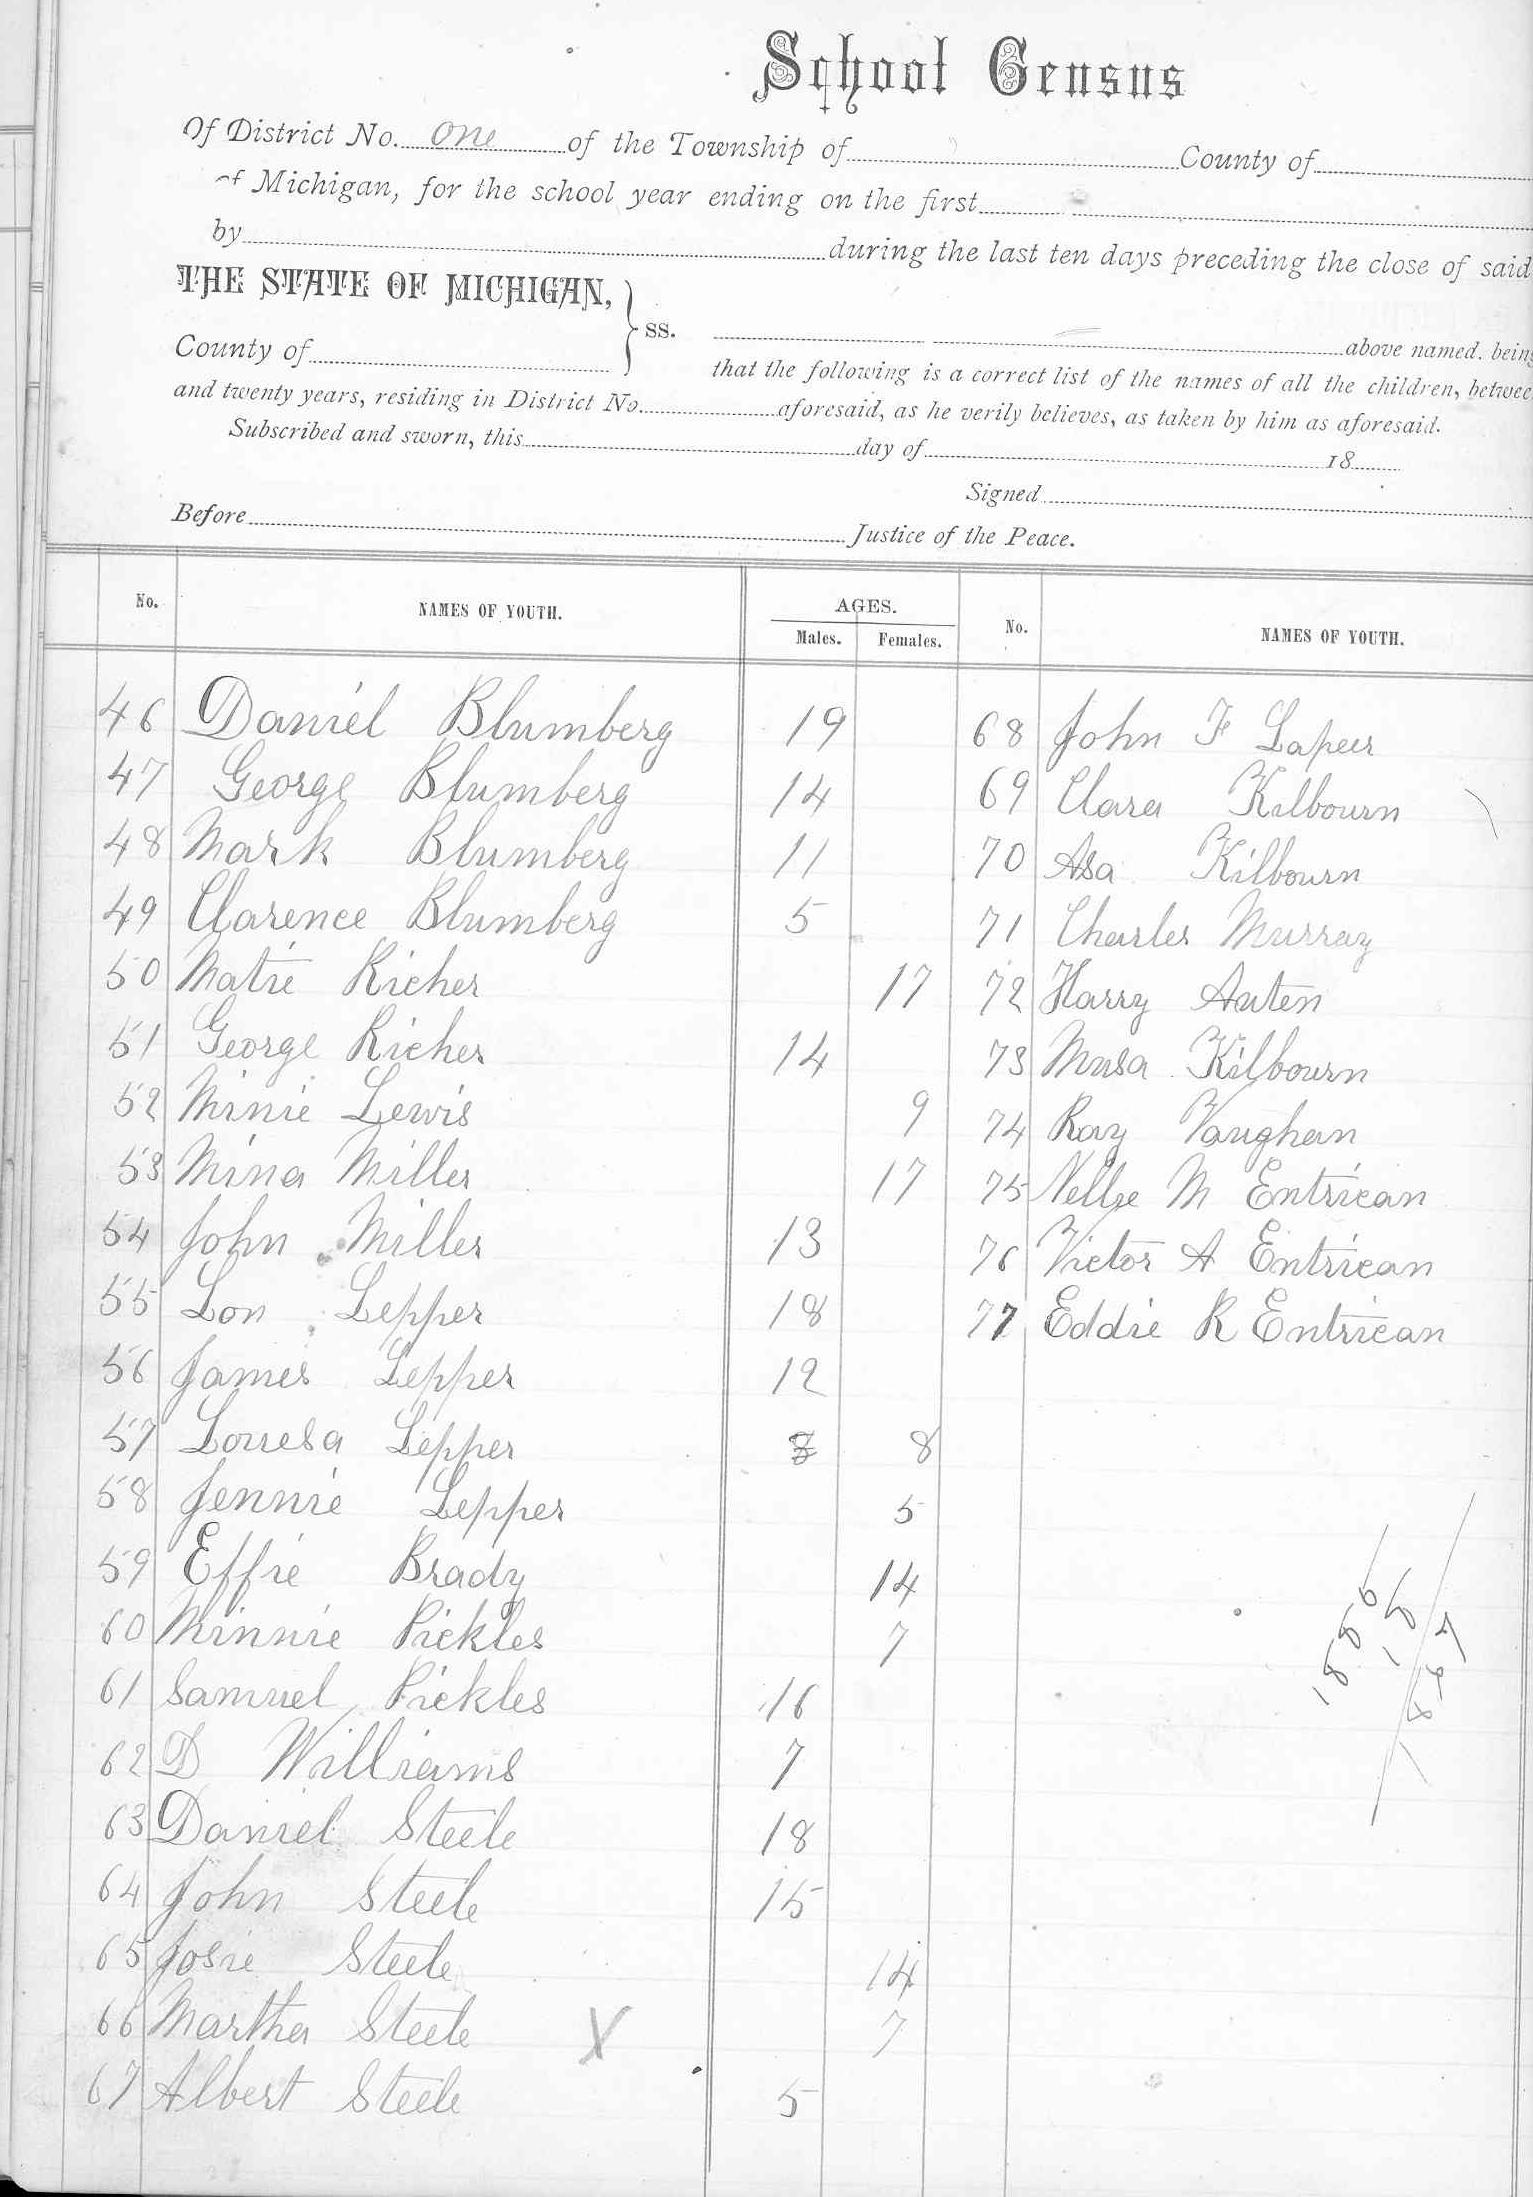 School Census
Of District No. one of the Township of County of
of Michigan, for the school year ending on the first
by during the last ten days preceding the close of said
THE STATE OF MICHIGAN,
ss.
County of
above named. being
that the following is a correct list of the names of all the children, between
and twenty years, residing in District No. aforesaid, as he verily believes, as taken by him as aforesaid.
Subscribed and sworn, this day of 18
Signed
Before Justice of the Peace.
No. NAMES OF YOUTH. AGES. Males. Females. No. NAMES OF YOUTH.
46 Daniel Blumberg 19
47 George Blumberg 14
48 Mark Blumberg 11
49 Clarence Blumberg 5
50 Matie Richer 17
51 George Richer 14
52 Minie Lewis 9
53 Mina Miller 17
54 John Miller 13
55 Lon Lepper 18
56 James Lepper 12
57 Louesa Lepper 8
58 Jennie Lepper 5
59 Effie Brady 14
60 Minnie Pickles 7
61 Samuel Pickles 16
62 D Williams 7
63 Daniel Steele 18
64 John Steele 15
65 Josie Steele 14
66 Martha Steele X 7
67 Albert Steele 5
68 John F Lapeer
69 Clara Kilbourn
70 Asa Kilbourn
71 Charles Murray
72 Harry Auten
73 Musa Kilbourn
74 Ray Vaughan
75 Nellie M Entrican
76 Victor A Entrican
77 Eddie R Entrican
1886